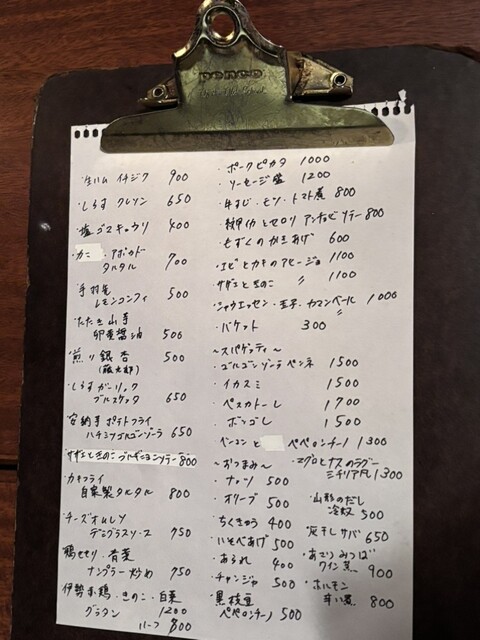 penco
生ハム イチジク 900
・しらす クレソン 650
・塩ゴマキュウリ 400
・カニ アボカド
タルタル 700
・手羽先
レモンコンフィ 500
・たたき山芋
卵黄醤油 500
・煎り銀杏 500
(藤九郎)
・しらすガーリック
ブルスケッタ 650
・安納芋ポテトフライ
ハチミツゴルゴンゾーラ 650
・サザエときのこ ブルギニョンソテー 800
・カキフライ
自家製タルタル 800
・チーズオムレツ
デミグラスソース 750
・鶏せせり・青菜
ナンプラー炒め 750
伊勢赤鶏・きのこ・白菜
グラタン 1200
ハーフ 800
・ポークピカタ 1000
・ソーセージ盛 1200
・牛すじ・モツ・トマト煮 800
・紋甲イカとセロリ アンチョビソテー 800
・もずくのかきあげ 600
・エビとカキのアヒージョ 1100
・サザエときのこ 〃 1100
・シャウエッセン・玉子・カマンベール 〃 1000
・バケット 300
〜スパゲッティ〜
・ゴルゴンゾーラペンネ 1500
・イカスミ 1500
・ペスカトーレ 1700
・ボンゴレ 1500
・ベーコンと ペペロンチーノ 1300
・マグロとナスのラグー
シチリア風 1300
〜おつまみ〜
・ナッツ 500
・オリーブ 500
・ちくきゅう 400
・いそべあげ 500
・あられ 400
・チャンジャ 500
・黒枝豆
ペペロンチーノ 500
・山形のだし
冷奴 500
・灰干しサバ 650
・あさりみつば
ワイン蒸 900
・ホルモン
辛い煮 800